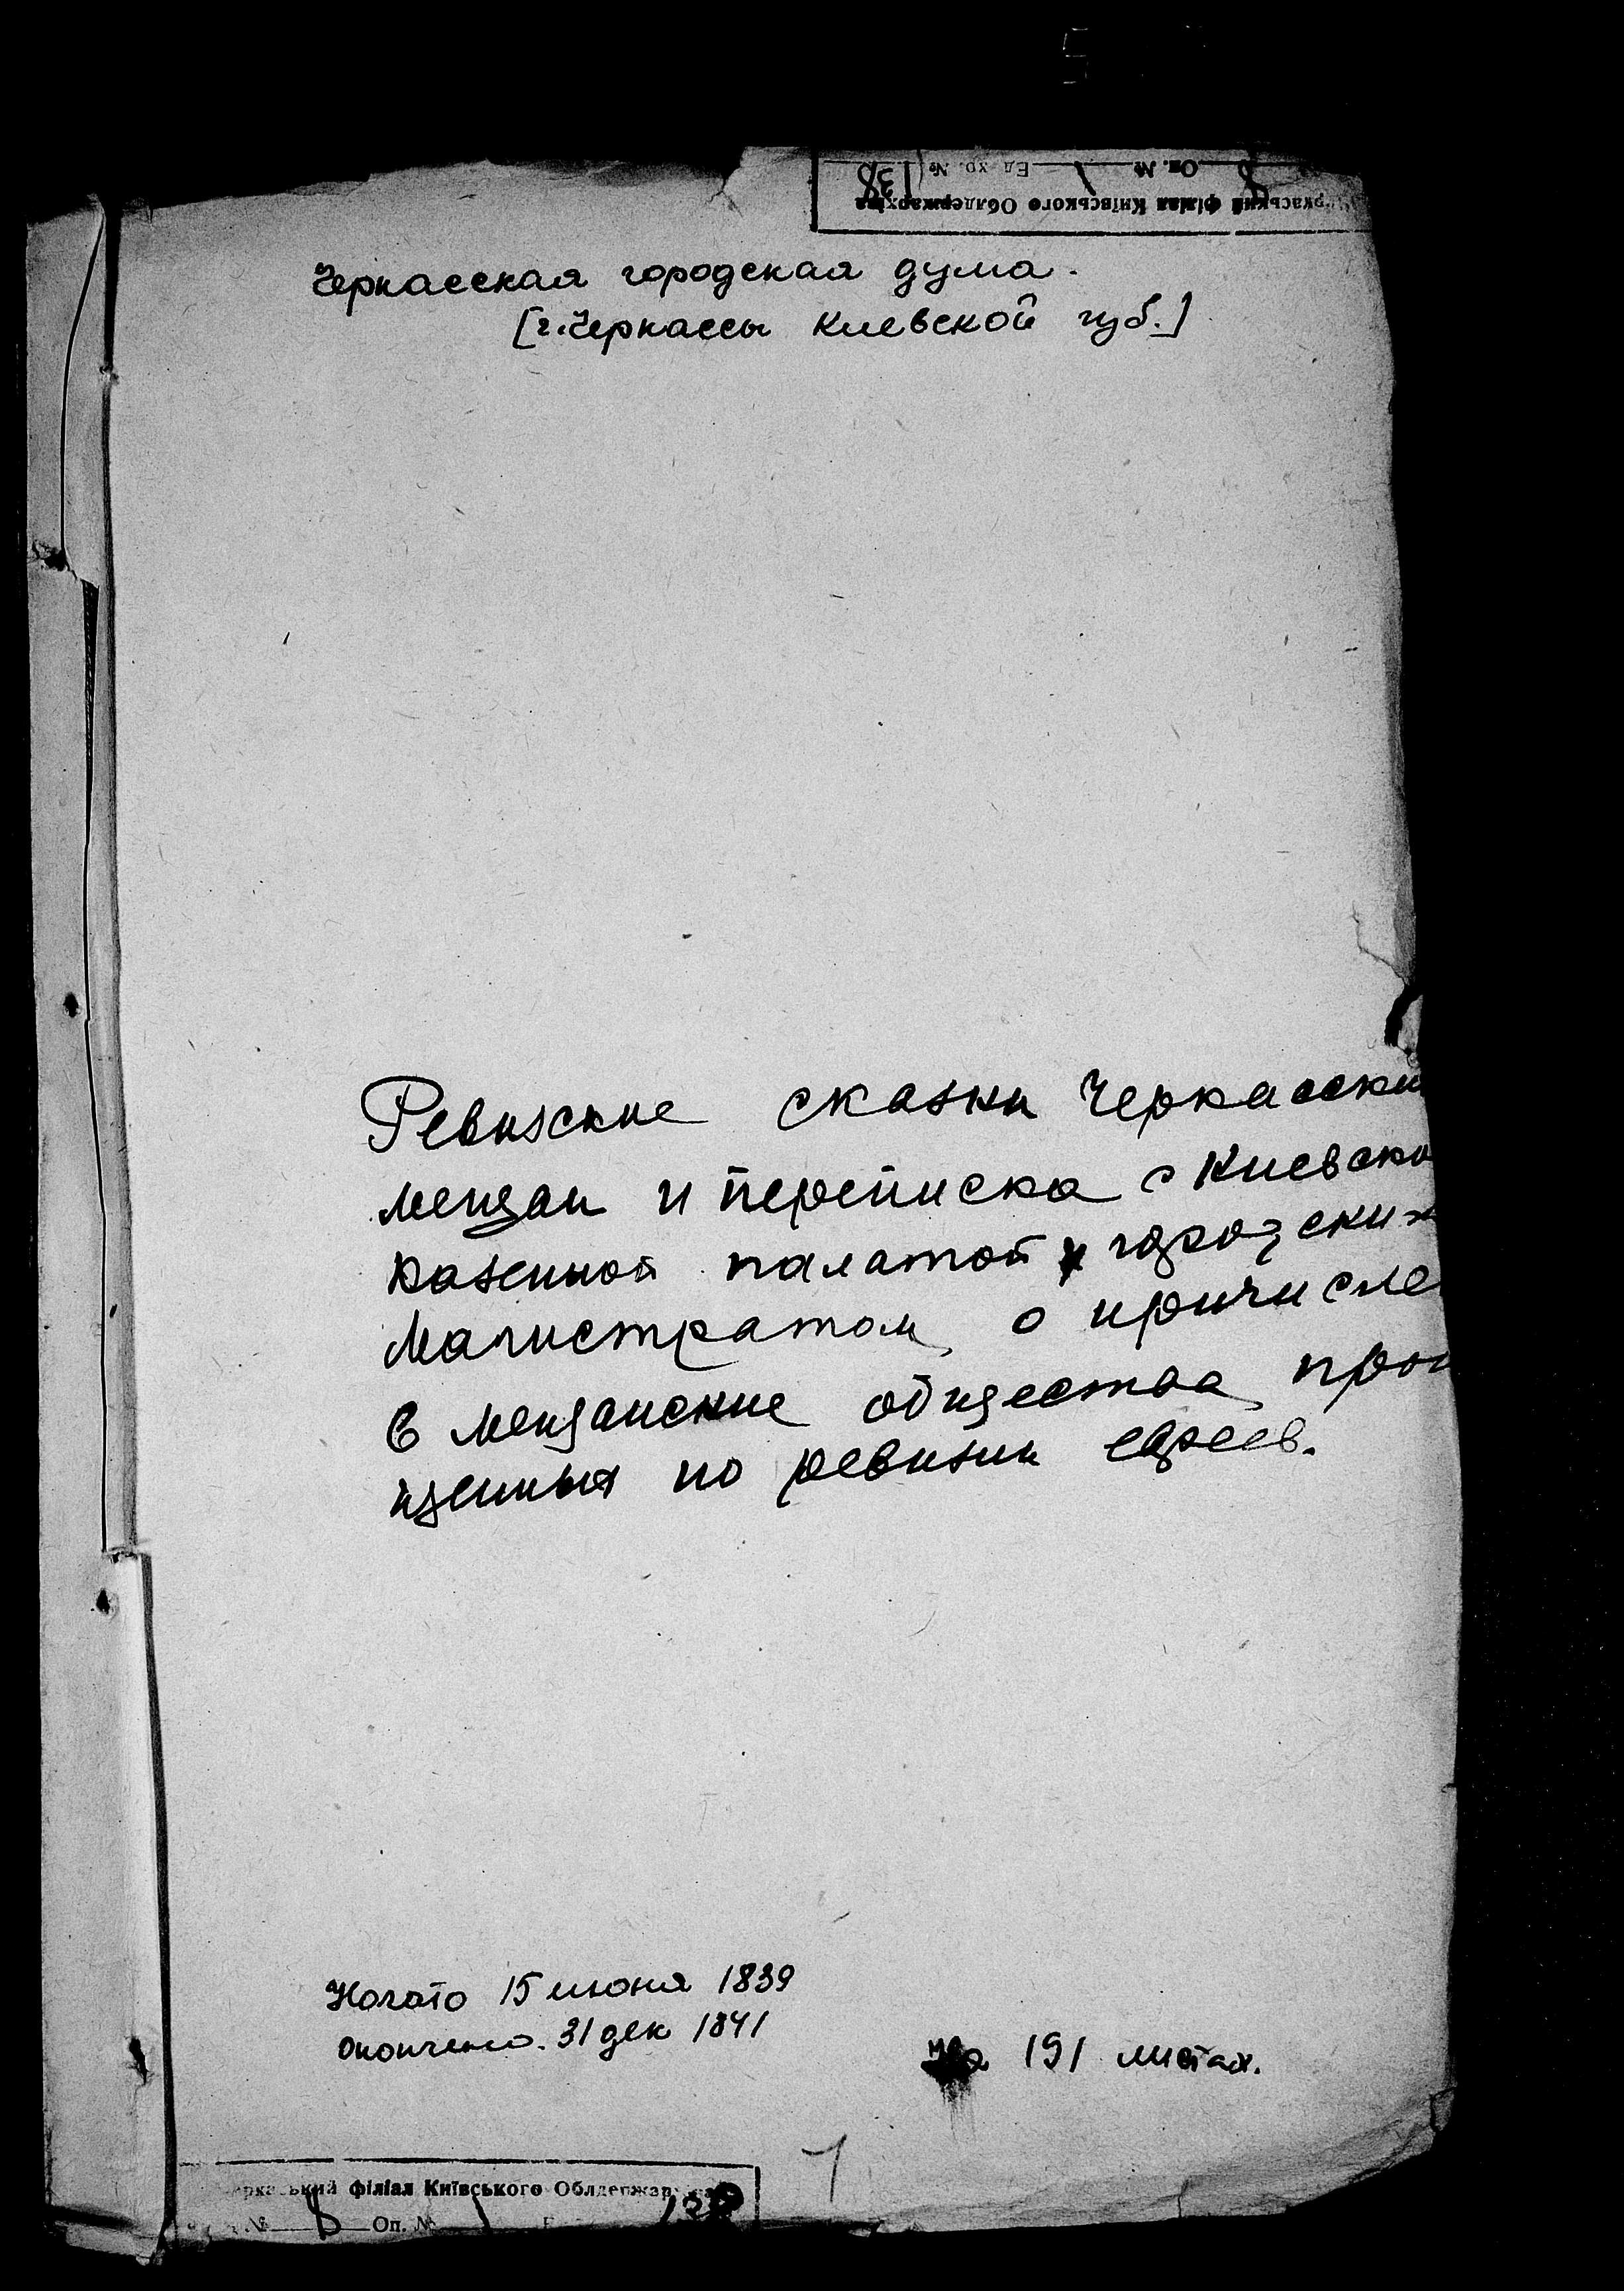 Оп. № 1 Ед. хр. №
ркаський філіал Київського Облдержархіва
Черкасская городская дума.
[г. Черкассы Киевской губ.]
Ревизские сказки Черкасски
мещан и переписка с Киевско
казенной палатой и городским
магистратом о причисле
в мещанские общества проп
щенных по ревизии евреев.
Начато 15 июня 1839
Окончено. 31 дек 1841
на 191 листах.
1
ркаський філіал Київського Облдержар
№ Оп. № 1